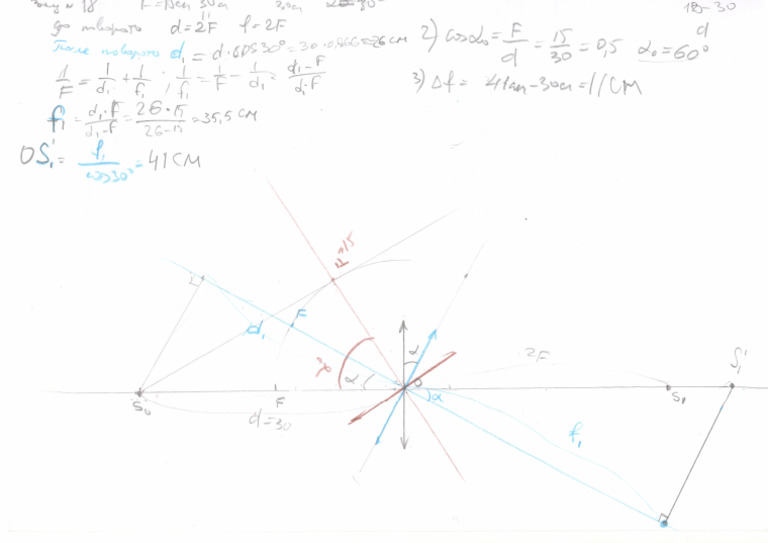 18 F=15см 30см 30°
18-30
до поворота d=2F f=2F
После поворота d₁=d·cos30°=30·0,866=26см
2) cosα₀=F/d=15/30=0,5 α₀=60°
1/F=1/d₁+1/f₁; 1/f₁=1/F-1/d₁=d₁-F/d₁·F
3) Δf= 41см-30см=11см
f₁=d₁·F/d₁-F=26·15/26-15=35,5см
OS₁'=f₁/cos30°=41см
F=15
F
d₁
α₀
α
α
2F
S₁'
O
S₀
F
α
S₁
d=30
f₁